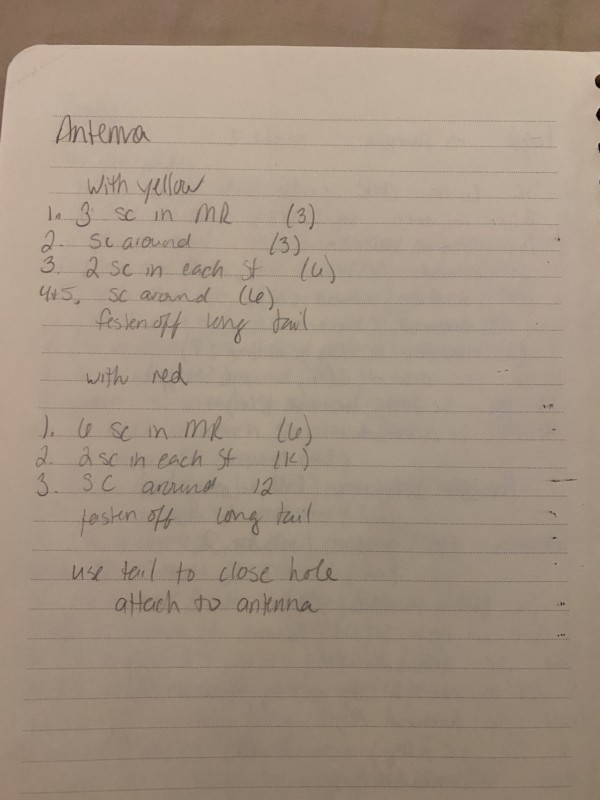 Antenna
with yellow
1. 3 sc in MR (3)
2. Sc around (3)
3. 2 sc in each st (6)
4+5, sc around (6)
festen off long tail
with red
1. 6 sc in MR (6)
2. 2sc in each st (12)
3. SC around 12
fasten off long tail
use tail to close hole
attach to antenna